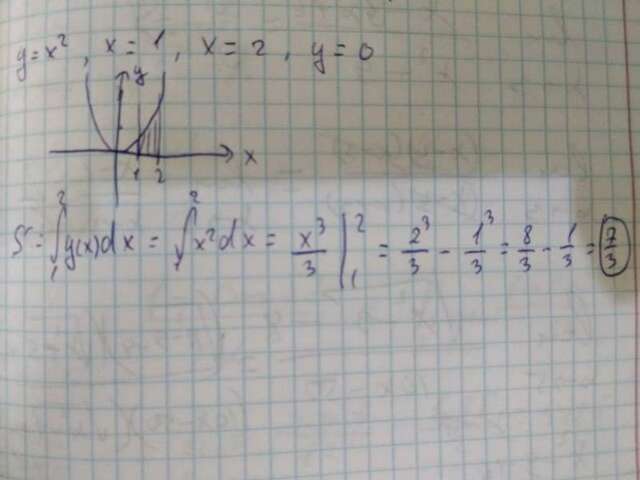 y = x², x = 1, x = 2, y = 0
y
1 2 x
S = ∫₁² y(x)dx = ∫₁² x²dx = x³/3 |₁² = 2³/3 - 1³/3 = 8/3 - 1/3 = 7/3